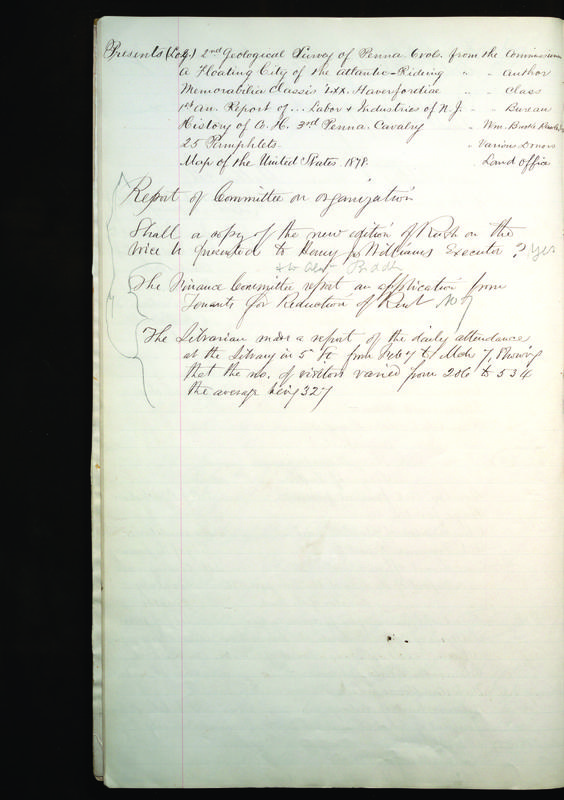 Presents (Log.) 2nd Geological Survey of Penna. 6 vols. from the Commissioners
A Floating City of the atlantic - Riding " " Author
Memorabilia Classis '2xx. Haverfordiae " - Class
1st An. Report of ... Labor & Industries of N.J. - - Bureau
History of Co. H. 3rd Penna. Cavalry " Wm. Brooke
25 Pamphlets. " Various Donors
Map of the United States. 1878. Land Office
Report of Committee on organization
Shall a copy of the new edition of Rush on the
Voice be presented to Henry J. Williams Executor? Yes
& to
The Finance Committee report an application from
Tenants for Reduction of Rent
The Librarian made a report of the daily attendance
at the Library in 5th St from Feby 7 to Mch 7, showing
that the no. of visitors varied from 206 to 534
the average being 327